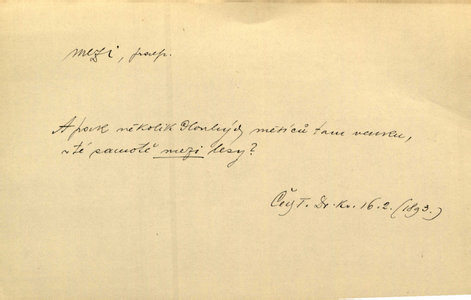 mezi, praep.
A pak několik dlouhých měsíců tam venku,
v té samotě mezi lesy?
Čes T. Dr. Kv. 16. 2. (1893.)